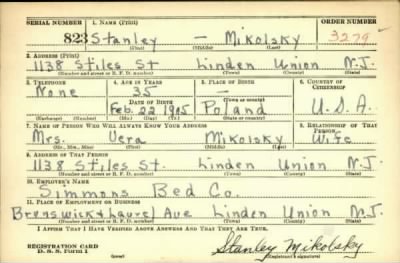 SERIAL NUMBER 1. NAME (Print) ORDER NUMBER
823 Stanley — Mikolsky 3279
(First) (Middle) (Last)
2. ADDRESS (Print)
1138 Stiles St Linden Union N.J.
(Number and street or R. F. D. number) (Town) (County) (State)
3. TELEPHONE 4. AGE IN YEARS 5. PLACE OF BIRTH 6. COUNTRY OF CITIZENSHIP
None 35 —
DATE OF BIRTH (Town or county)
Feb. 22 1905 Poland U.S.A.
(Mo.) (Day) (Yr.) (State or country)
7. NAME OF PERSON WHO WILL ALWAYS KNOW YOUR ADDRESS 8. RELATIONSHIP OF THAT PERSON
Mrs. Vera Mikolsky Wife
(Mr., Mrs., Miss) (First) (Middle) (Last)
9. ADDRESS OF THAT PERSON
1138 Stiles St. Linden Union N.J.
(Number and street or R. F. D. number) (Town) (County) (State)
10. EMPLOYER'S NAME
Simmons Bed Co.
11. PLACE OF EMPLOYMENT OR BUSINESS
Brunswick & Laurel Ave Linden Union N.J.
(Number and street or R. F. D. number) (Town) (County) (State)
I AFFIRM THAT I HAVE VERIFIED ABOVE ANSWERS AND THAT THEY ARE TRUE.
REGISTRATION CARD
D. S. S. Form 1 Stanley Mikolsky
(Registrant's signature)